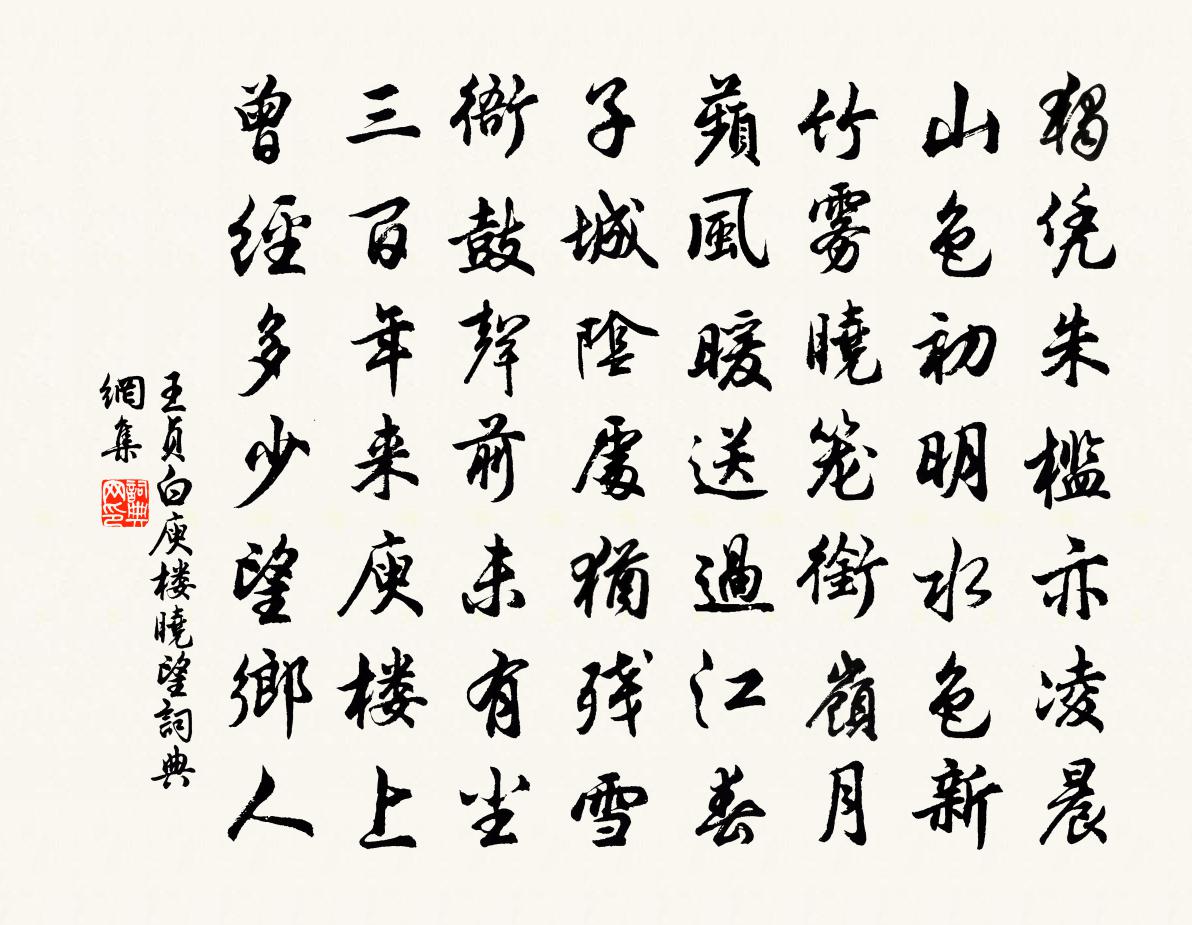 獨凭朱檻亦凌晨
山色初明水色新
竹雾曉笼銜嶺月
蘋風暖送過江春
子城陰處猶残雪
衙鼓聲前未有尘
三百年来庾楼上
曾經多少望鄉人
王貞白庾楼曉望詞典
網集
詞典
网印